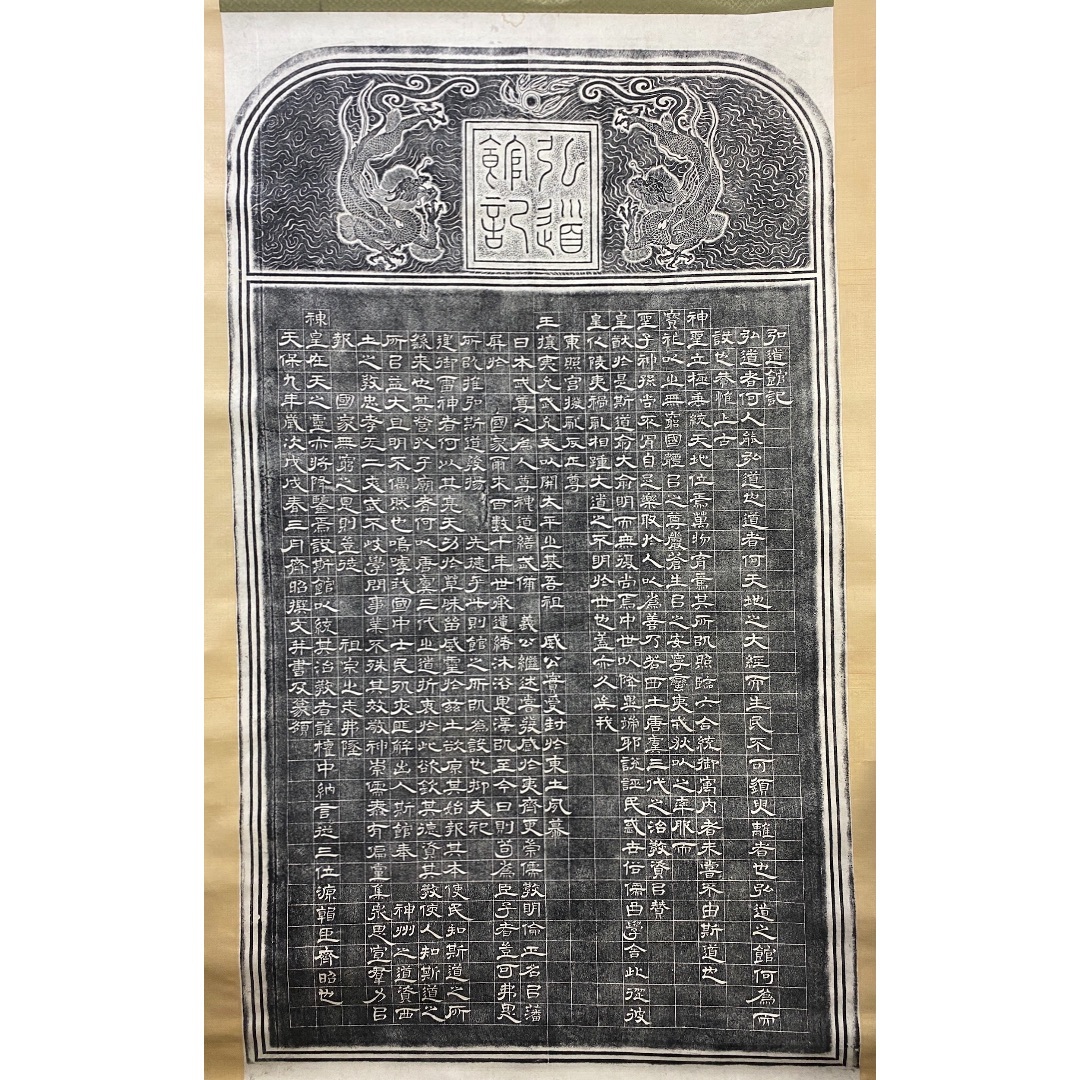 弘道館記
弘道館記
弘道者何人能弘道也道者何天地之大經而生民不可須臾離者也弘道之館何爲而
設也恭惟上古
神聖立極垂統天地位焉萬物育焉其所以照臨六合統御寓内者未嘗不由斯道也
寶祚以之無窮國體以之尊嚴蒼生以之安寧蠻夷戎狄以之率服而
聖子神孫尚不肯自足樂取於人以爲善乃若西土唐虞三代之治敎資以贊
皇猷於是斯道兪大兪明而無復尚焉中世以降異端邪說誣民惑世俗儒曲學舍此從彼
皇化陵夷禍亂相踵大道之不明於世也蓋亦久矣我
東照宮撥亂反正尊
王攘夷允武允文以開太平之基吾祖 威公實受封於東土夙慕
日本武尊之爲人尊神道繕武備 義公繼述嘗發感於夷齊更崇儒敎明倫正名以藩
屏於 國家爾來百數十年世承遺緒沐浴恩澤以至今日則苟爲臣子者豈可弗思
所以推弘斯道發揚 先德乎此則館之所以爲設也抑夫祀
建御雷神者何以其亮天功於草昧留威靈於茲土欲原其始報其本使民知斯道之所
繇來也其營孔子廟者何以唐虞三代之道折衷於此欲欽其德資其敎使人知斯道之
所以益大且明不偶然也嗚呼我國中士民夙夜匪解出入斯館奉 神州之道資西
土之敎忠孝无二文武不岐學問事業不殊其效敬神崇儒無有偏黨集衆思宣羣力以
報 國家無窮之恩則豈徒 祖宗之志弗墜
神皇在天之靈亦將降鑒焉設斯館以統其治敎者誰權中納言從三位源朝臣齊昭也
天保九年歲次戊戌春三月齊昭撰文并書及篆額